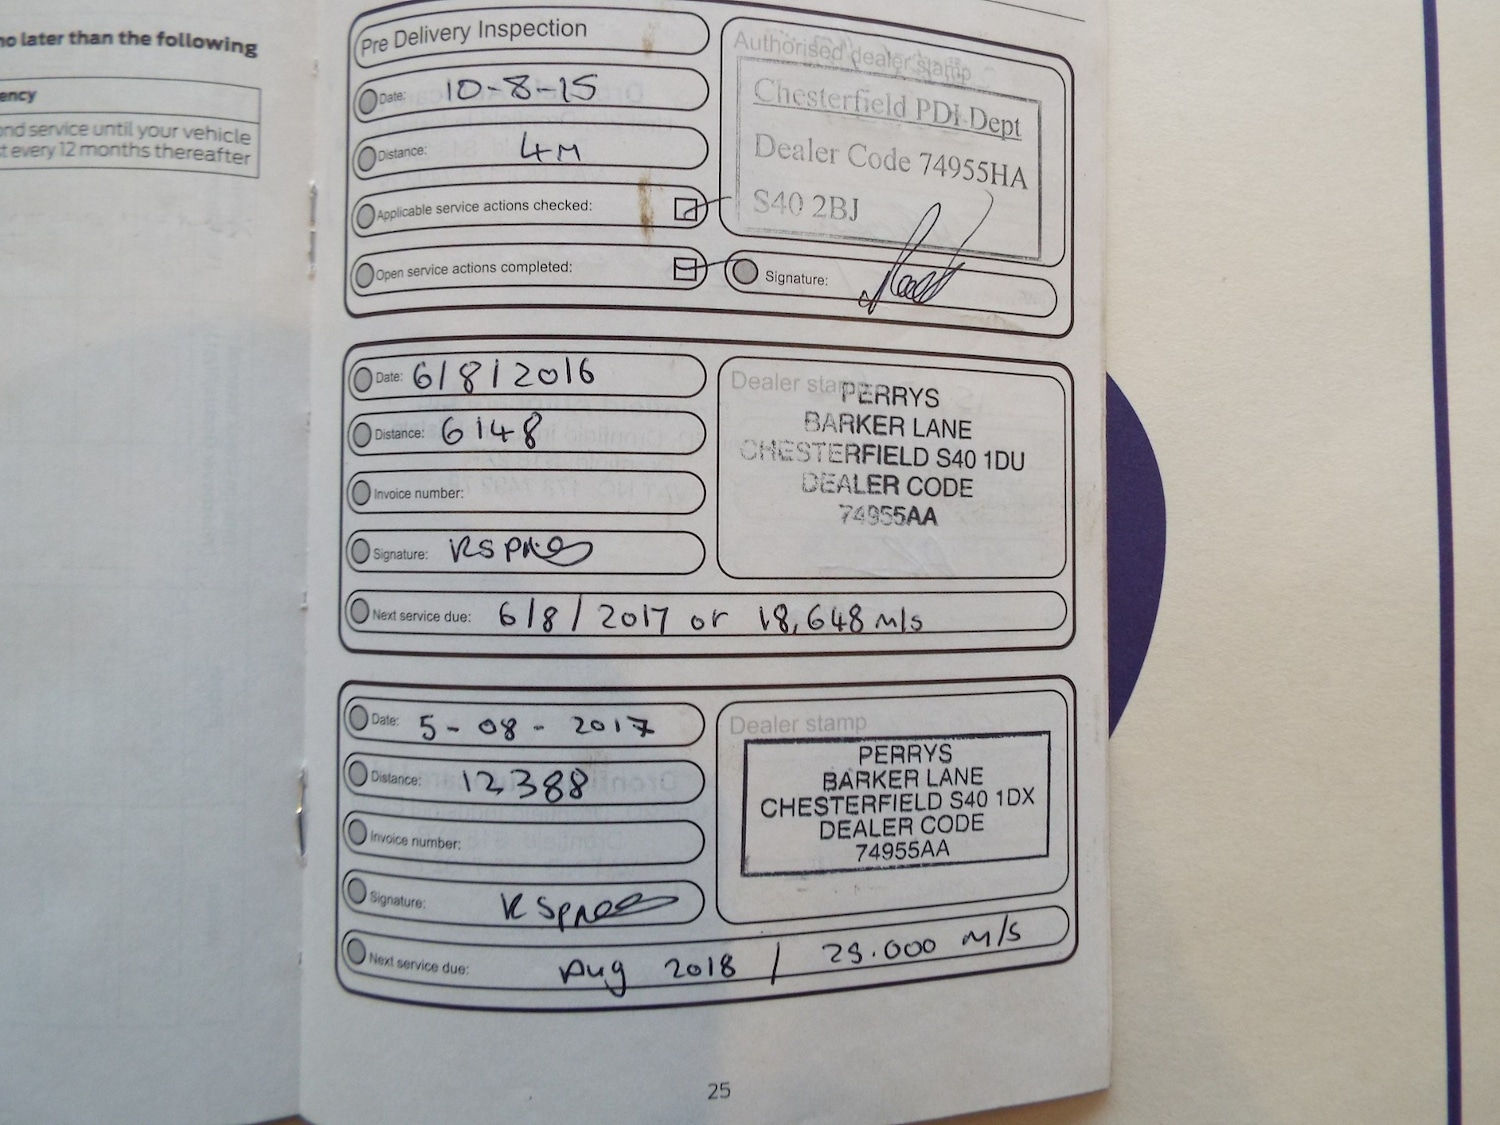 no later than the following
ency
nd service until your vehicle
t every 12 months thereafter
Pre Delivery Inspection
Date: 10-8-15
Distance: 4M
Applicable service actions checked:
Open service actions completed:
Authorised dealer stamp
Chesterfield PDI Dept
Dealer Code 74955HA
S40 2BJ
Signature:
Date: 6/8/2016
Distance: 6148
Invoice number:
Signature:
Dealer stamp
PERRYS
BARKER LANE
CHESTERFIELD S40 1DU
DEALER CODE
74955AA
Next service due: 6/8/2017 or 18,648 m/s
Date: 5-08-2017
Distance: 12388
Invoice number:
Signature:
Dealer stamp
PERRYS
BARKER LANE
CHESTERFIELD S40 1DX
DEALER CODE
74955AA
Next service due: Aug 2018 / .000 m/s
25